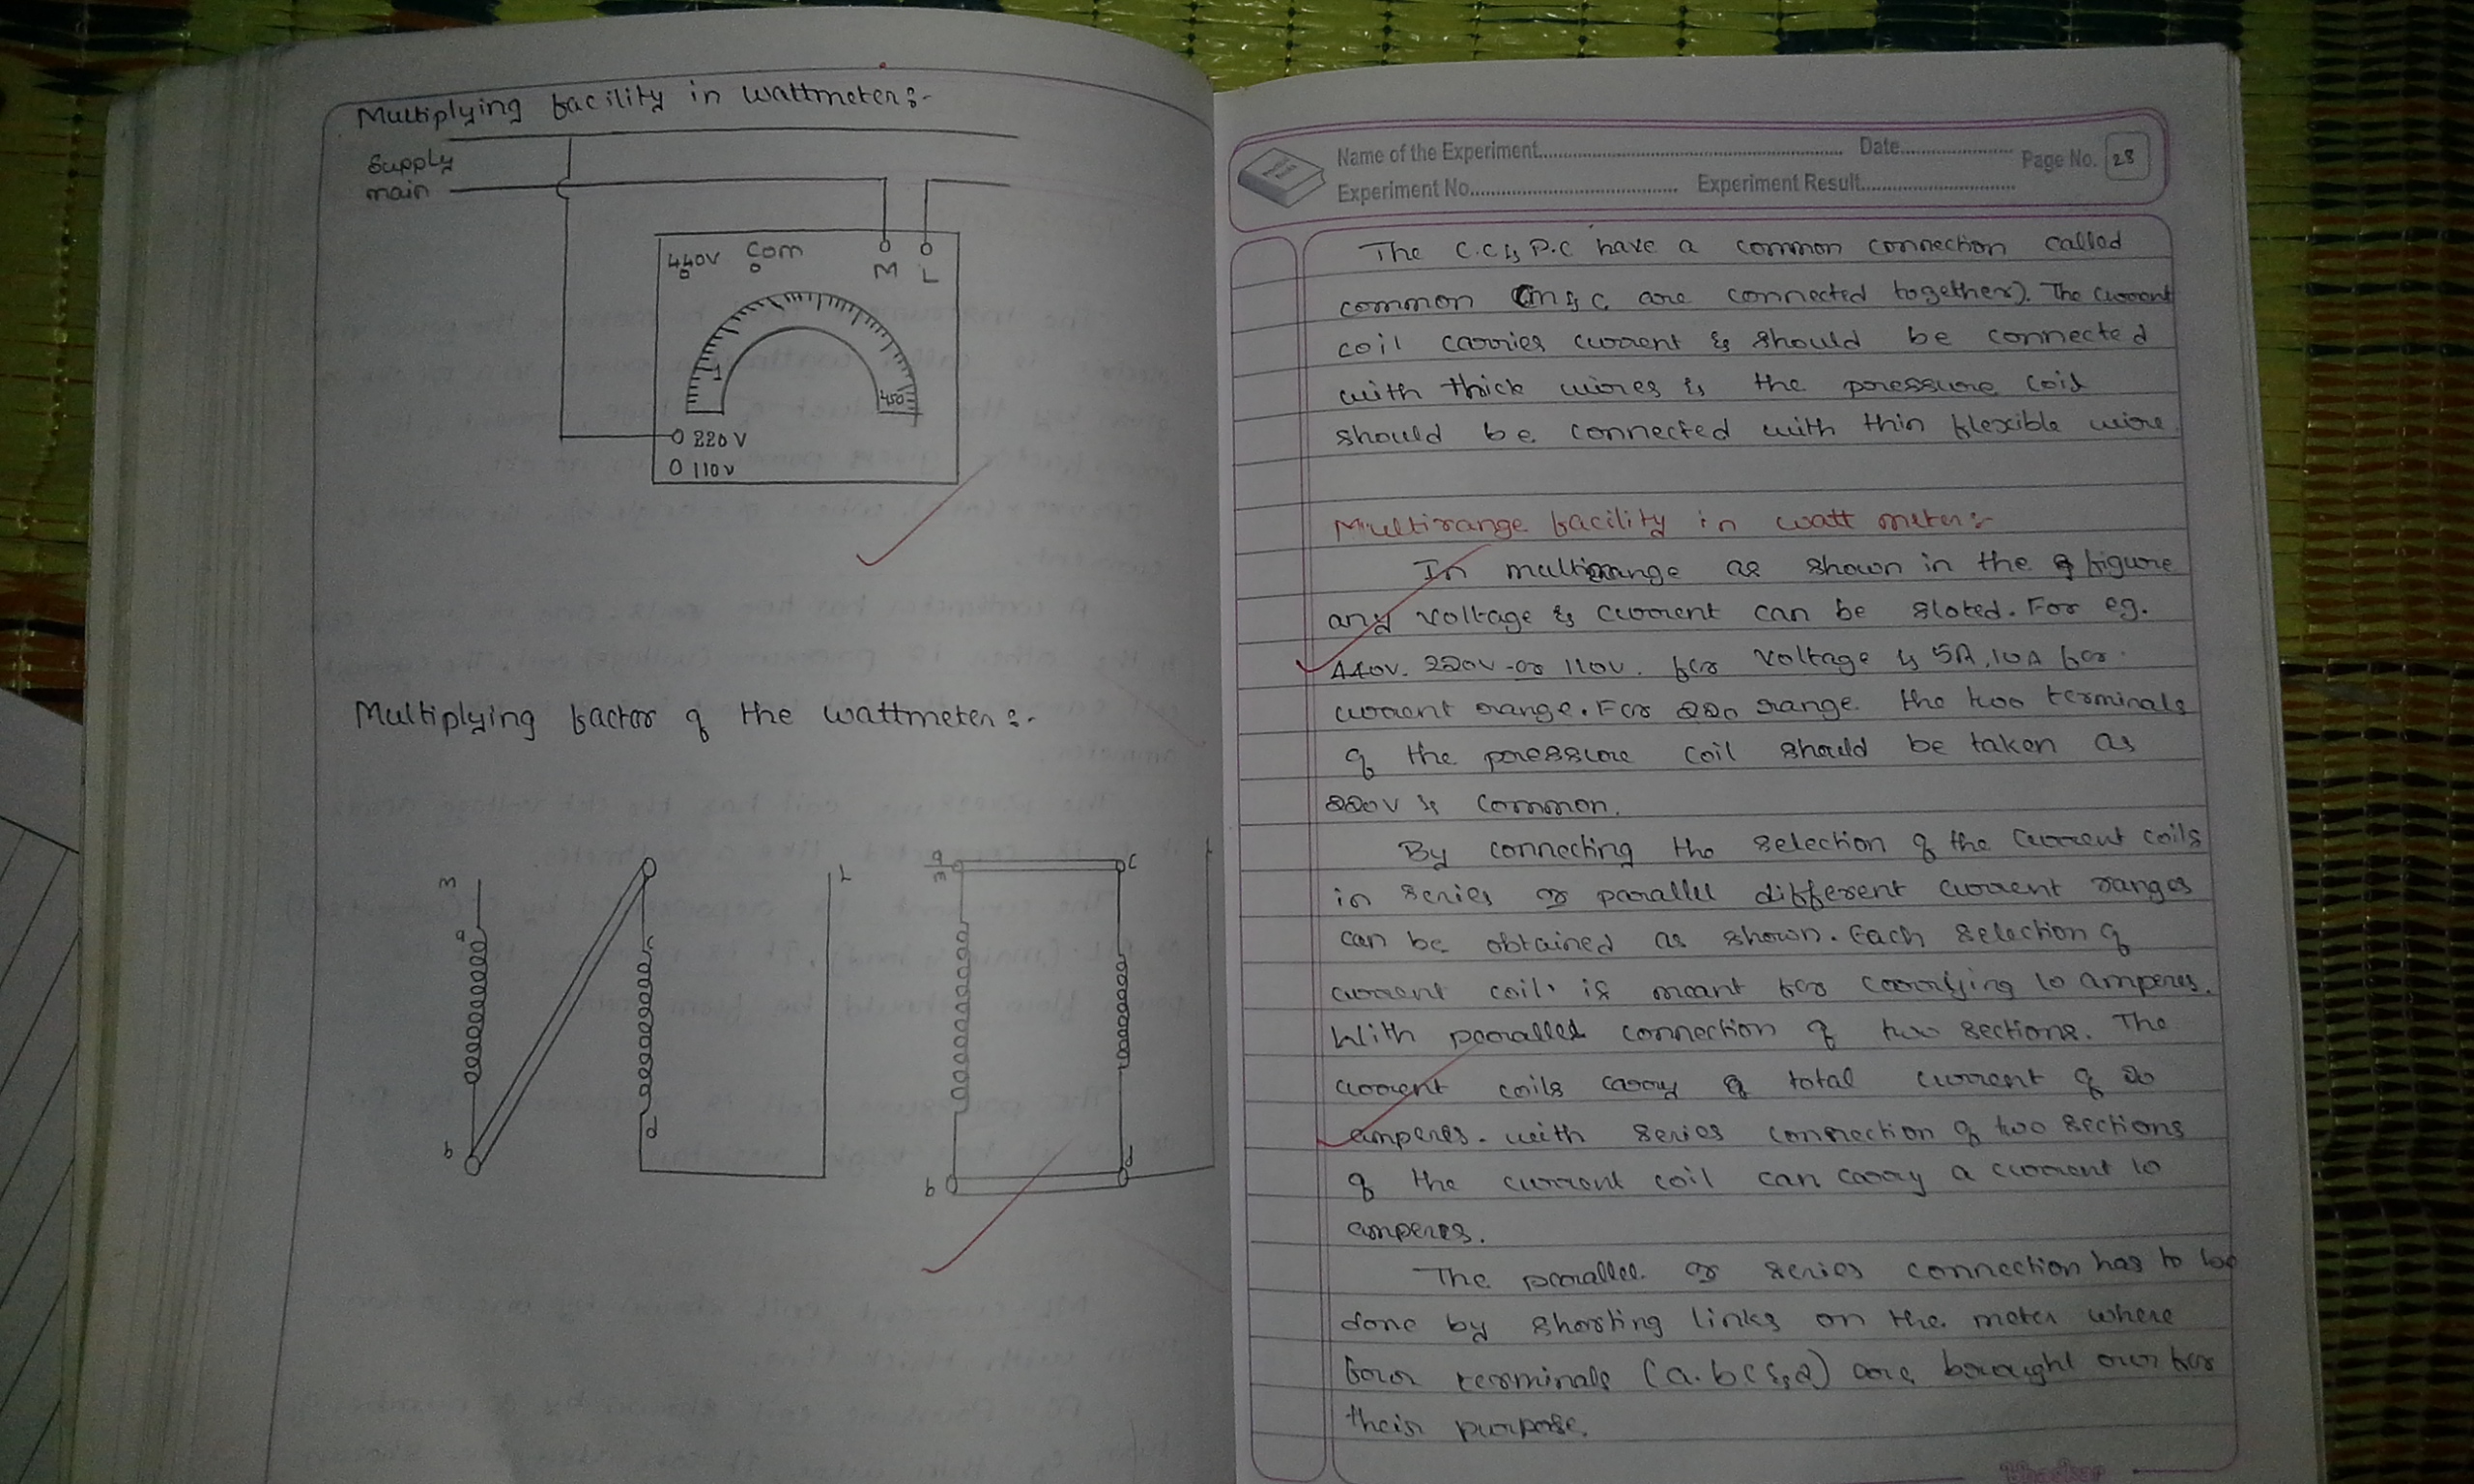 Multiplying facility in wattmeter:-
Supply
main
440V Com
M L
1
450
220 V
110 V
Multiplying factor of the wattmeter:-
m
a
b
c
d
L
a
m
c
b
d
L
Name of the Experiment.......... Date.......... Page No. 28
Experiment No.......... Experiment Result..........
The C.C & P.C have a common connection called
common (m & c are connected together). The current
coil carries current & should be connected
with thick wires & the pressure coil
should be connected with thin flexible wire
Multirange facility in watt meter:-
In multirange as shown in the figure
any voltage & current can be sloted. For eg.
440V. 220V or 110V. for voltage & 5A, 10A for
current range. For 220 range the two terminals
of the pressure coil should be taken as
220V & common.
By connecting the selection of the current coils
in series or parallel different current ranges
can be obtained as shown. Each selection of
current coil is meant for carrying 10 amperes.
With parallel connection of two sections. The
current coils carry a total current of 20
amperes. with series connection of two sections
of the current coil can carry a current 10
amperes.
The parallel or series connection has to be
done by shorting links on the meter where
four terminals (a. b c & d) are brought over for
their purpose.